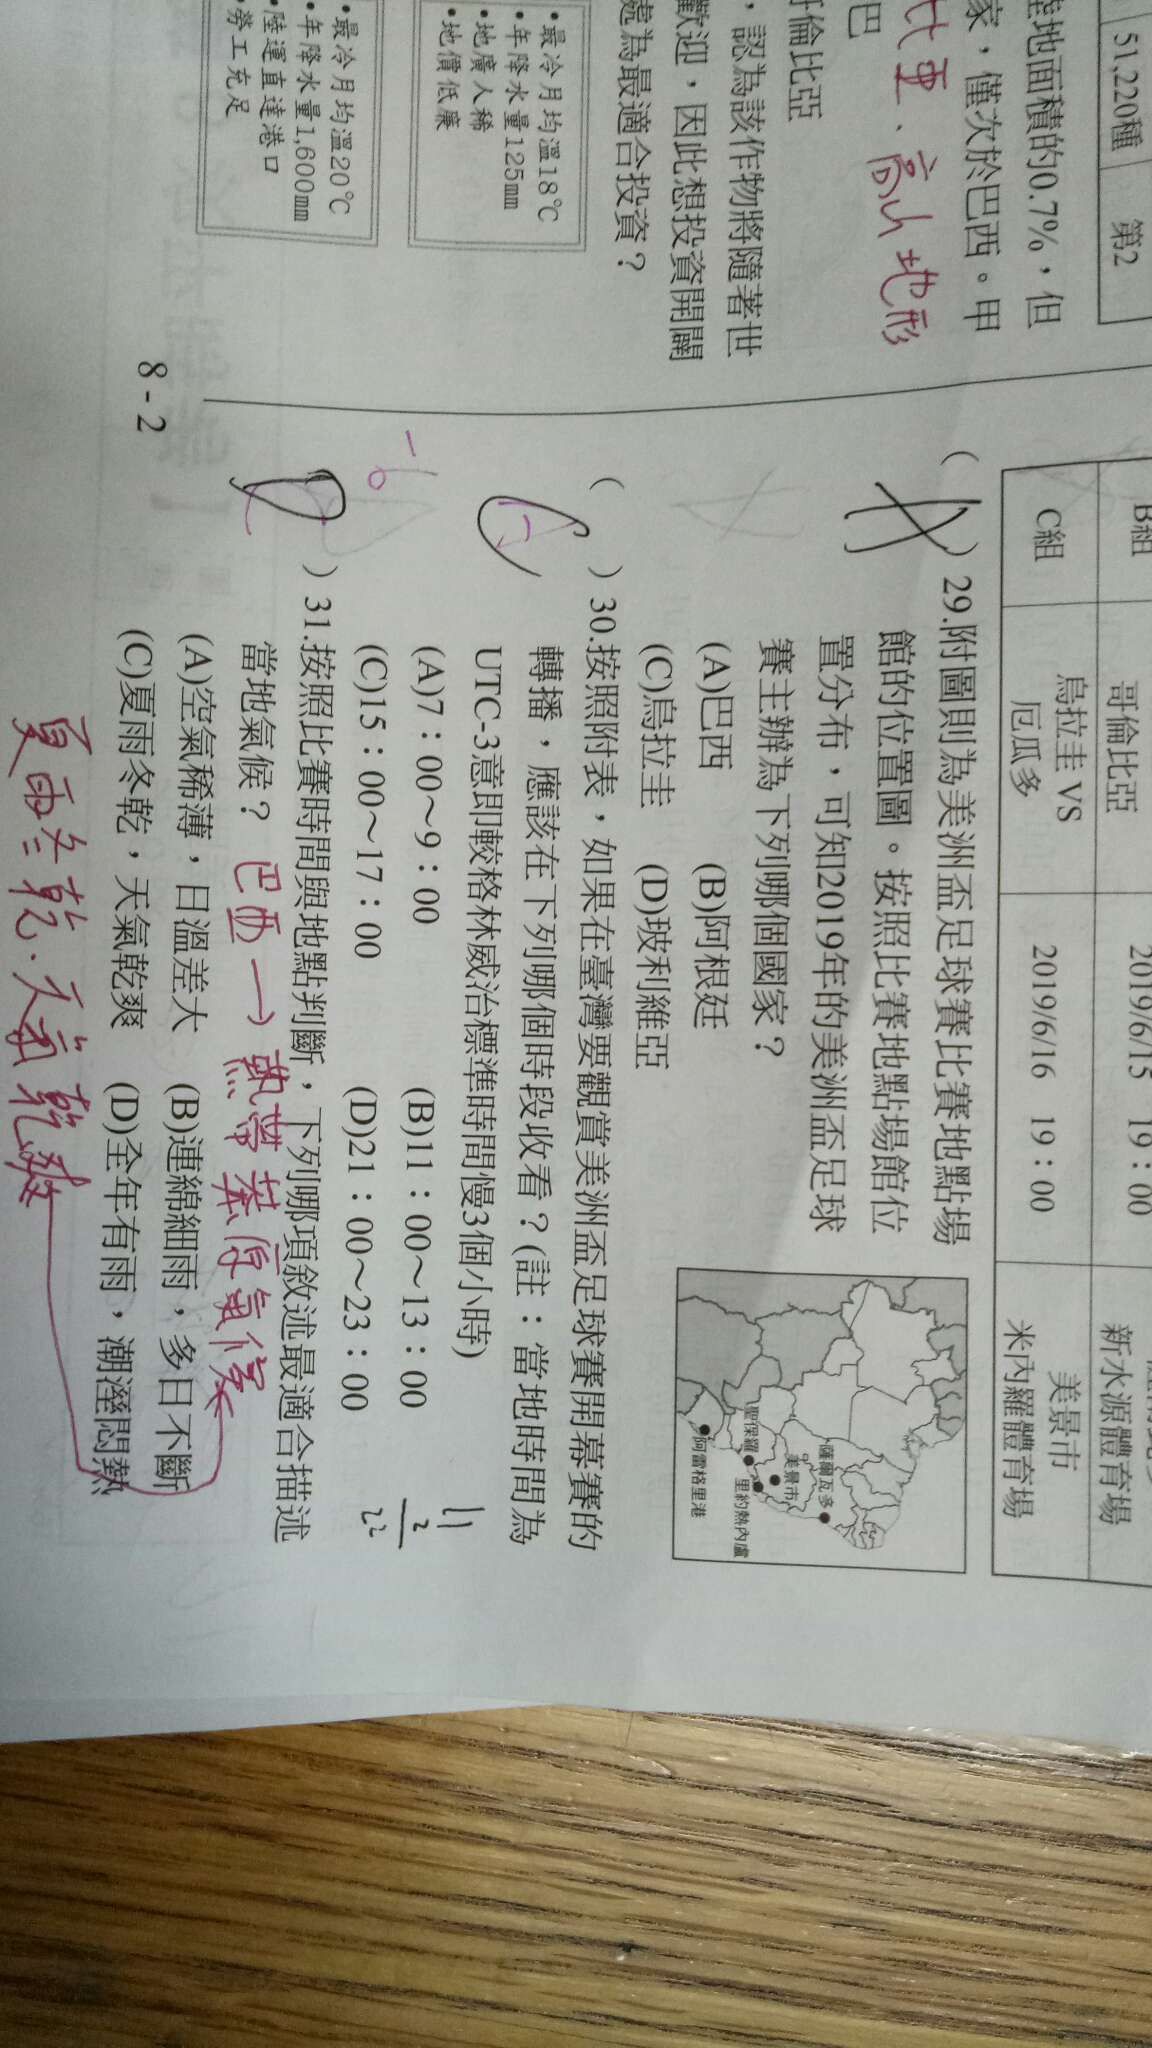 51,220種 第2
陸地面積的0.7%，但
家，僅次於巴西。甲
比亞、高山地形
巴
哥倫比亞
，認為該作物將隨著世
歡迎，因此想投資開闢
處為最適合投資？
•最冷月均溫18℃
•年降水量125mm
•地廣人稀
•地價低廉
•最冷月均溫20℃
•年降水量1,600mm
•陸運直達港口
•勞工充足
8-2
B組 哥倫比亞 2019/6/15 19：00 新水源體育場
C組 烏拉圭 VS 厄瓜多 2019/6/16 19：00 美景市 米內羅體育場
( A )29.附圖則為美洲盃足球賽比賽地點場
館的位置圖。按照比賽地點場館位
置分布，可知2019年的美洲盃足球
賽主辦為下列哪個國家？
(A)巴西 (B)阿根廷
(C)烏拉圭 (D)玻利維亞
薩爾瓦多
美景市
里約熱內盧
聖保羅
阿雷格里港
( )30.按照附表，如果在臺灣要觀賞美洲盃足球賽開幕賽的
轉播，應該在下列哪個時段收看？(註：當地時間為
UTC-3意即較格林威治標準時間慢3個小時)
(A)7：00～9：00 (B)11：00～13：00
(C)15：00～17：00 (D)21：00～23：00
-6
11
2
22
( D )31.按照比賽時間與地點判斷，下列哪項敘述最適合描述
當地氣候？ 巴西一）熱帶莽原氣候
(A)空氣稀薄，日溫差大 (B)連綿細雨，多日不斷
(C)夏雨冬乾，天氣乾爽 (D)全年有雨，潮溼悶熱
夏雨冬乾、天氣乾爽